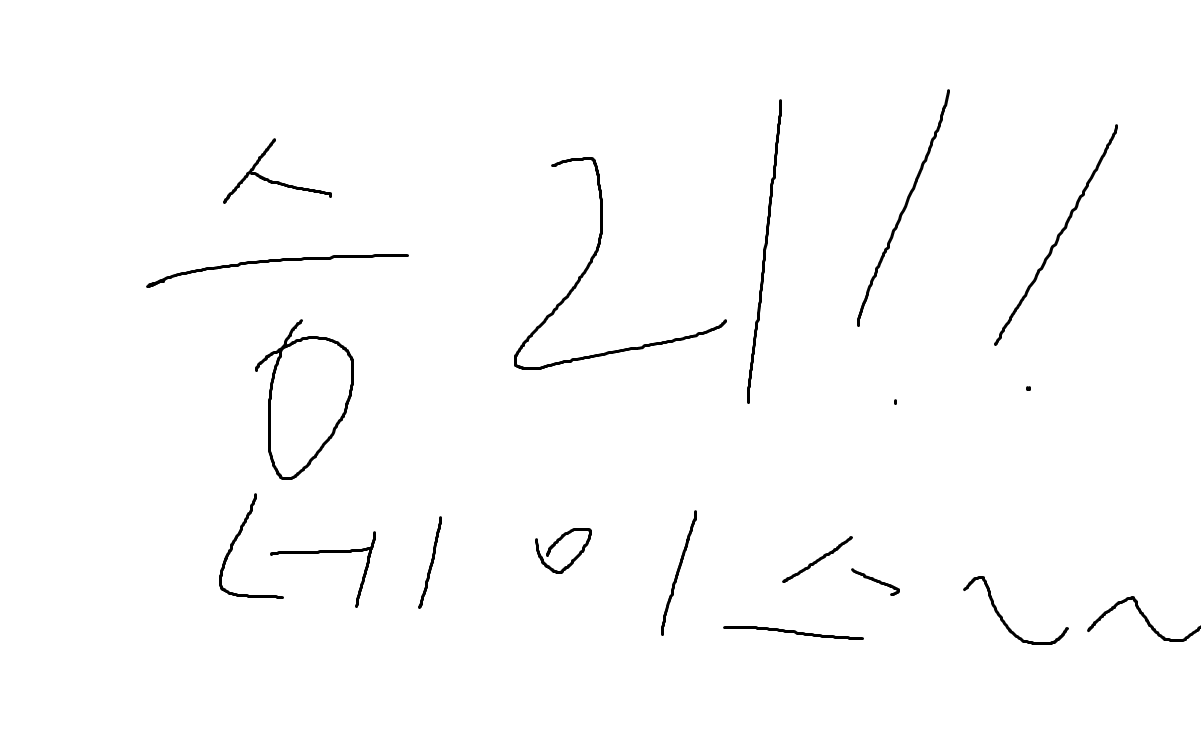 승리!!
네이스~~